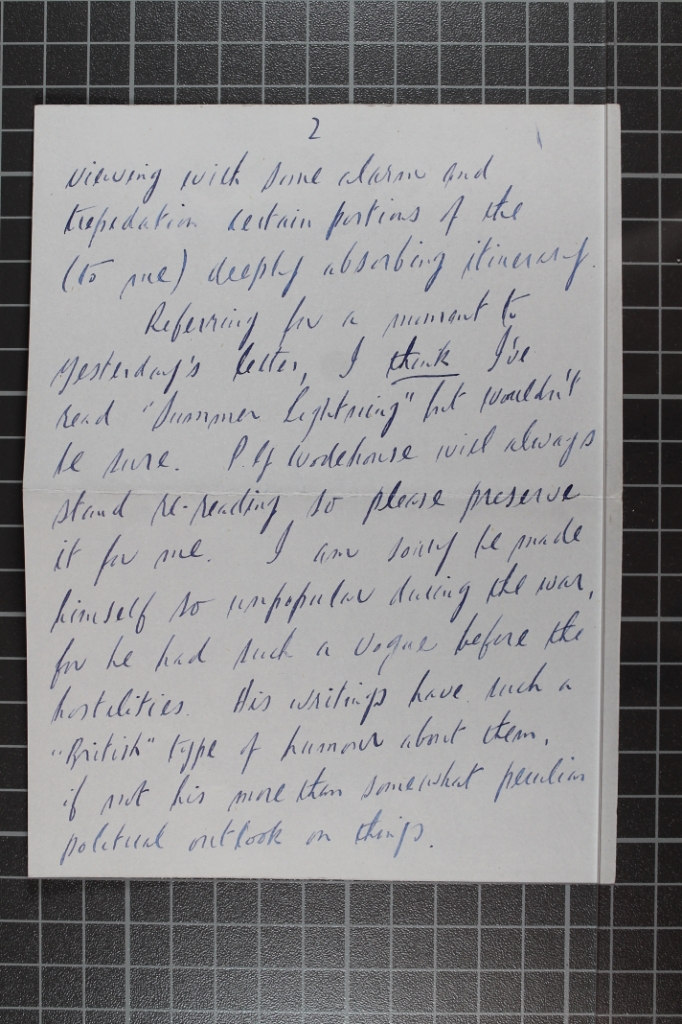 2
viewing with some alarm and
trepidation certain portions of the
(to me) deeply absorbing itinerary.
Referring for a moment to
yesterday's letter, I think I've
read "Summer Lightning" but wouldn't
be sure. P.G Wodehouse will always
stand re-reading so please preserve
it for me. I am sorry he made
himself so unpopular during the war,
for he had such a vogue before the
hostilities. His writings have such a
"British" type of humour about them,
if not his more than somewhat peculiar
political outlook on things.